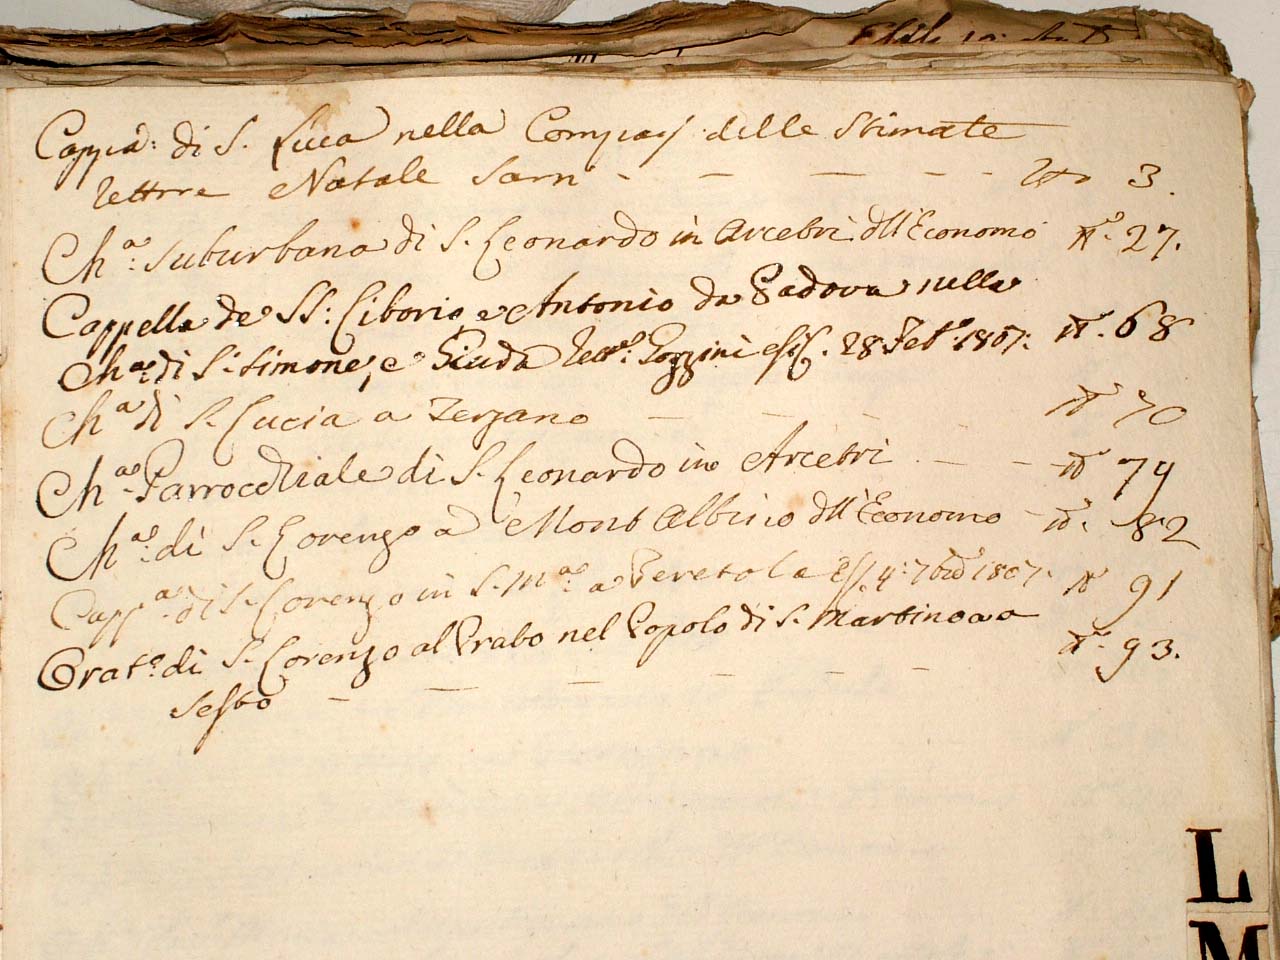 Cappa: di S. Luca nella Compag delle Stimate
Rettore Natale Sarn - - - - - - No 3.
Cha: suburbana di S. Leonardo in Arcetri dll'Economo No. 27.
Cappella de SS: Liborio e Antonio da Padova nella
Cha: di S. Simone, e Giuda Retre Pozzini 28 Feb. 1807. No. 68
Cha di S. Lucia a Terzano - - - No 70
Cha Parrochiale di S. Leonardo in Arcetri - - - No 79
Cha: di S. Lorenzo a Mont Albino dll'Economo - No. 82
Cappa di S. Lorenzo in S. Ma a Peretola 4: 7bre 1807. No 91
Orato. di S. Lorenzo al Prato nel Popolo di S. Martino a
Sesto - - - - - - No. 93.
L
M